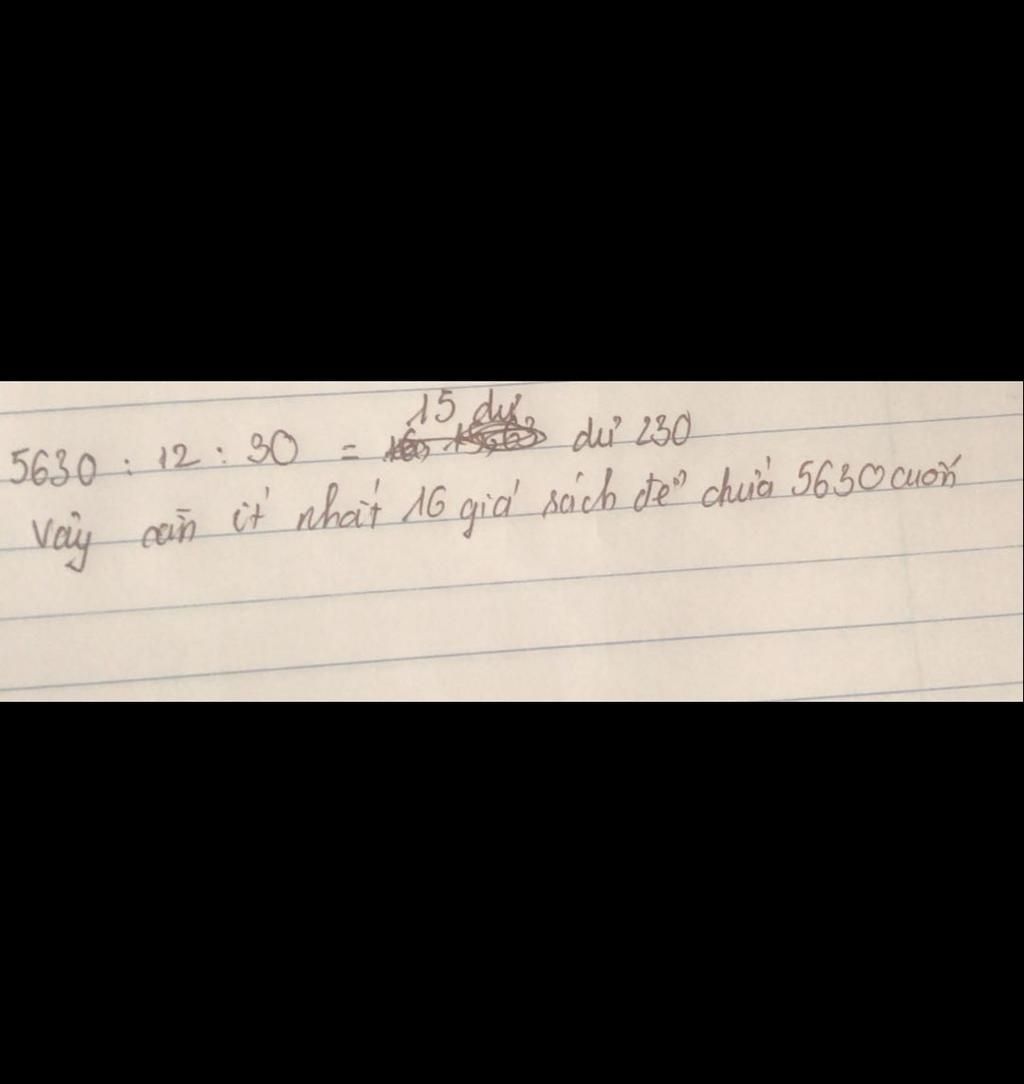 15 dư
5630 : 12 : 30 = dư 230
Vậy cần ít nhất 16 giá sách để chứa 5630 cuốn